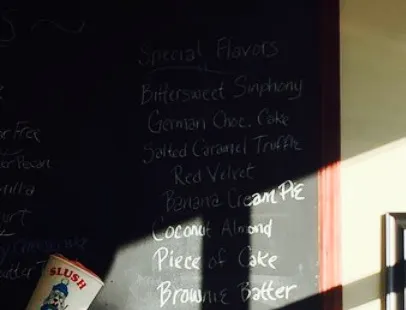 Special Flavors
Bittersweet Sinphony
German Choc. Cake
Salted Caramel Truffle
Red Velvet
Banana Cream PIE
Coconut Almond
Piece of Cake
Brownie Batter
Free
Pecan
SLUSH